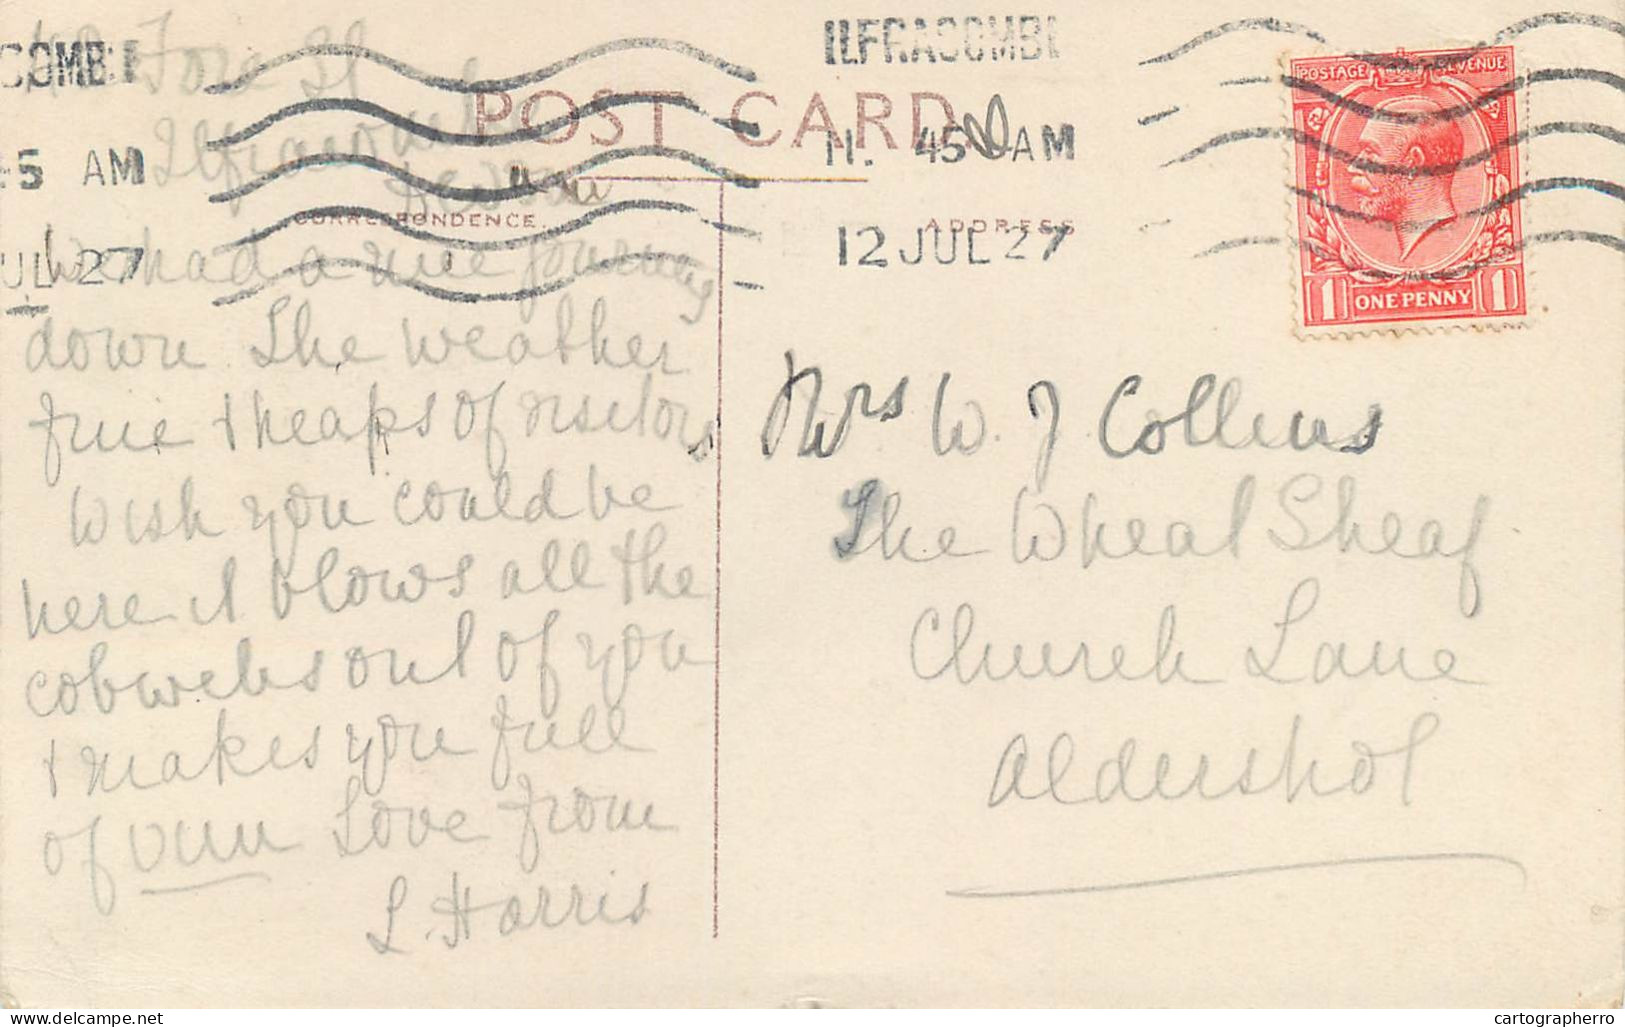 Fore St
Ilfracombe
Devon
We had a nice journey
down. The weather
fine + heaps of visitors
Wish you could be
here it blows all the
cobwebs out of you
+ makes you full
of vim Love from
L. Harris
COMBE
45 AM
JUL 27
POST CARD
CORRESPONDENCE.
ADDRESS
ILFRACOMBE
11. 45 AM
12 JUL 27
POSTAGE REVENUE
1 ONE PENNY 1
Mrs W. J Collins
The Wheat Sheaf
Church Lane
Aldershot
delcampe.net
cartographerro